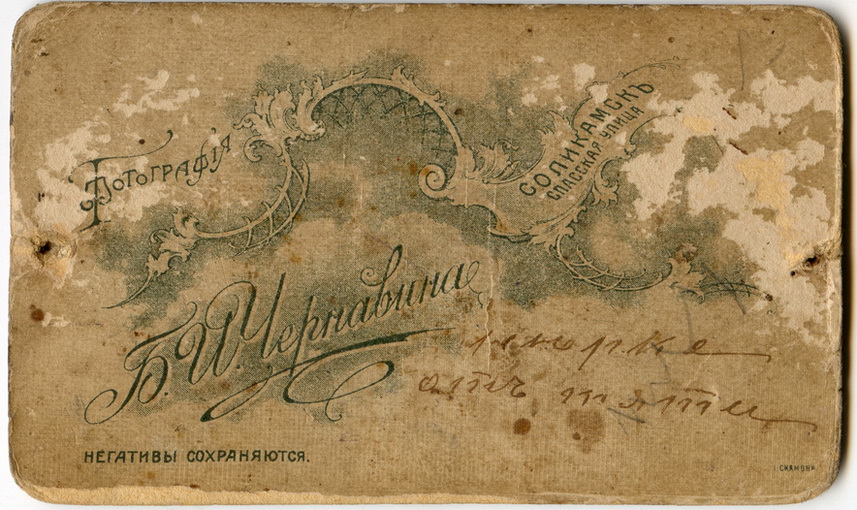 Фотографія
СОЛИКАМСКЪ
СПАССКАЯ УЛИЦА
Б. И. Чернавина
отъ тяти
НЕГАТИВЫ СОХРАНЯЮТСЯ.